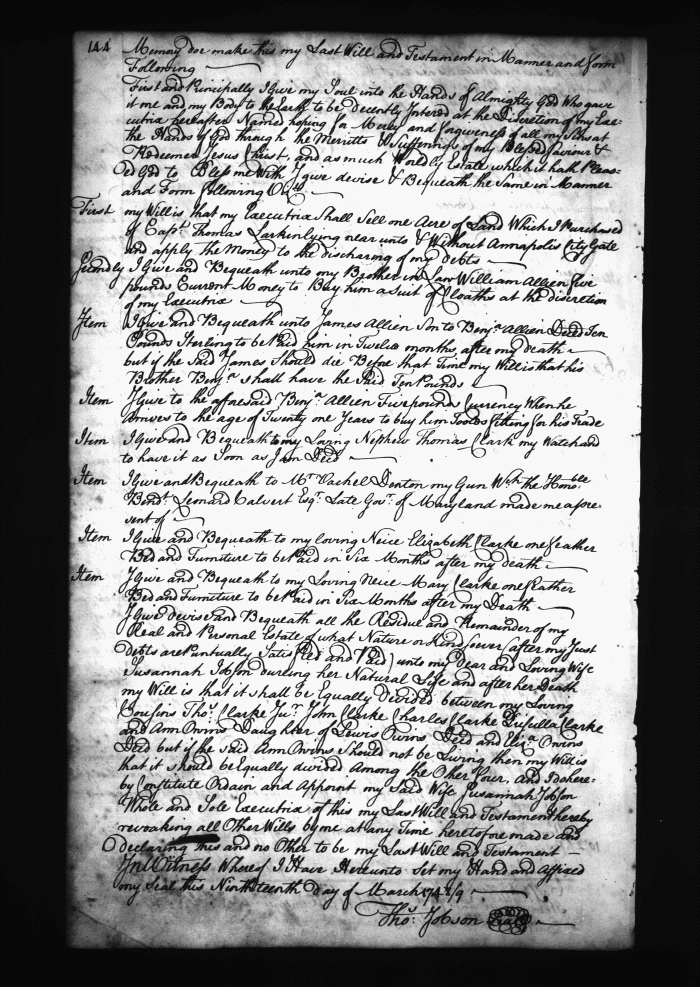 144
Memory doe make this my Last Will and Testament in Manner and form
Following
First and Principally I Give my Soul into the Hands of Almighty God Who gave
it me and my Body to the Earth to be Decently Interred at the Discretion of my Exe-
cutrix hereafter Named hoping for Mercy and forgiveness of all my Sins at
the Hands of God through the Merritts & Sufferings of my Blessed Saviour &
Redeemer Jesus Christ, and as much Worldly Estate which it hath Pleas-
ed God to Bless me With I give devise & Bequeath the Same in Manner
and Form following
First my Will is, that my Executrix Shall Sell one Acre of Land Which I Purchased
of Capt. Thomas Larkin lying near unto & Without Annapolis City Gate
and apply the Money to the discharging of my debts
Secondly I Give and Bequeath unto my Brother in Law William Allien five
pounds Current Money to Buy him a Suit of Cloaths at the discretion
of my Executrix
Item I Give and Bequeath unto James Allien Son to Benj.a Allien Deced Ten
Pounds Sterling to be Paid him in Twelve months after my death
but if the Said James Should die Before that Time my Will is that his
Brother Benj.a shall have the Said Ten Pounds
Item I Give to the aforesaid Benj.a Allien Five pounds Currency When he
arrives to the age of Twenty one Years to buy him Tools fitting for his Trade
Item I Give and Bequeath to my Loving Nephew Thomas Clark my Watch and
to have it as Soon as I am Deced
Item I Give and Bequeath to Mr. Vachel Denton my Gun Wch the Honoble
Bendt. Leonard Calvert Esqr. Late Govr. of Maryland made me a pre-
sent of
Item I Give and Bequeath to my loving Neice Elizabeth Clarke one Feather
Bed and Furniture to be Paid in Six Months after my death
Item I Give and Bequeath to my Loving Neice Mary Clarke one Feather
Bed and Furniture to be Paid in Six Months after my Death
I Give Devise and Bequeath all the Residue and Remainder of my
Real and Personal Estate of what Nature or Kind soever (after my Just
Debts are Puntually Satisfied and Paid) unto my Dear and Loving Wife
Susannah Jobson dureing her Natural Life and after her Death
my Will is that it shall be Equally Devided between my Loving
Cousins Thos. Clarke Junr. John Clarke Charles Clarke Prisulla Clarke
and Ann Owins Daughter of Lewis Owins Deced and Eliz.a Owins
Deced but if the Said Ann Owins Should not be Living then my Will is
that it should be Equally divided Among the Other Four, and I do here-
by Constitute Ordain and Appoint my Said Wife Susannah Jobson
Whole and Sole Executrix of this my Last Will and Testament hereby
revoaking all Other Wills by me at any Time heretofore made and
declaring this and no Other to be my Last Will and Testament
In Witness Whereof I Have Hereunto Set my Hand and Affixed
my Seal this Ninhteenth day of March 174 8/9
Thos. Jobson Seal